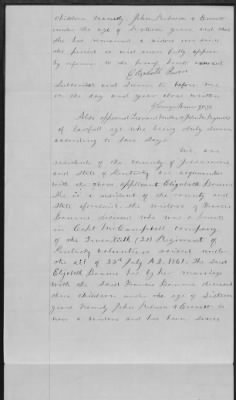 children namely John Pedrow & Everett
under the age of Sixteen years and that
she has remained a widow ever since
the period as will more fully appear
by reference to the proof hereto annexed
Elizabeth Downs
Subscribed and Sworn to before me
on the day and year above written
George
Also appeared
of lawful age who being duly sworn
according to law Says
We are
residents of the county of Jefferson
and State of Kentucky are acquainted
with the above applicant Elizabeth Downs
She is a resident of the county and
State aforesaid the widow of Francis
Downs deceased who was a private
in Capt McCampbell company
of the Twentieth (20) Regiment of
Kentucky volunteers raised under
the act of 22d July A.D. 1861. The said
Elizabeth Downs has by her marriage
with the said Francis Downs deceased
three children under the age of Sixteen
years namely John Pedrow & Everett is
now a widow and has been since